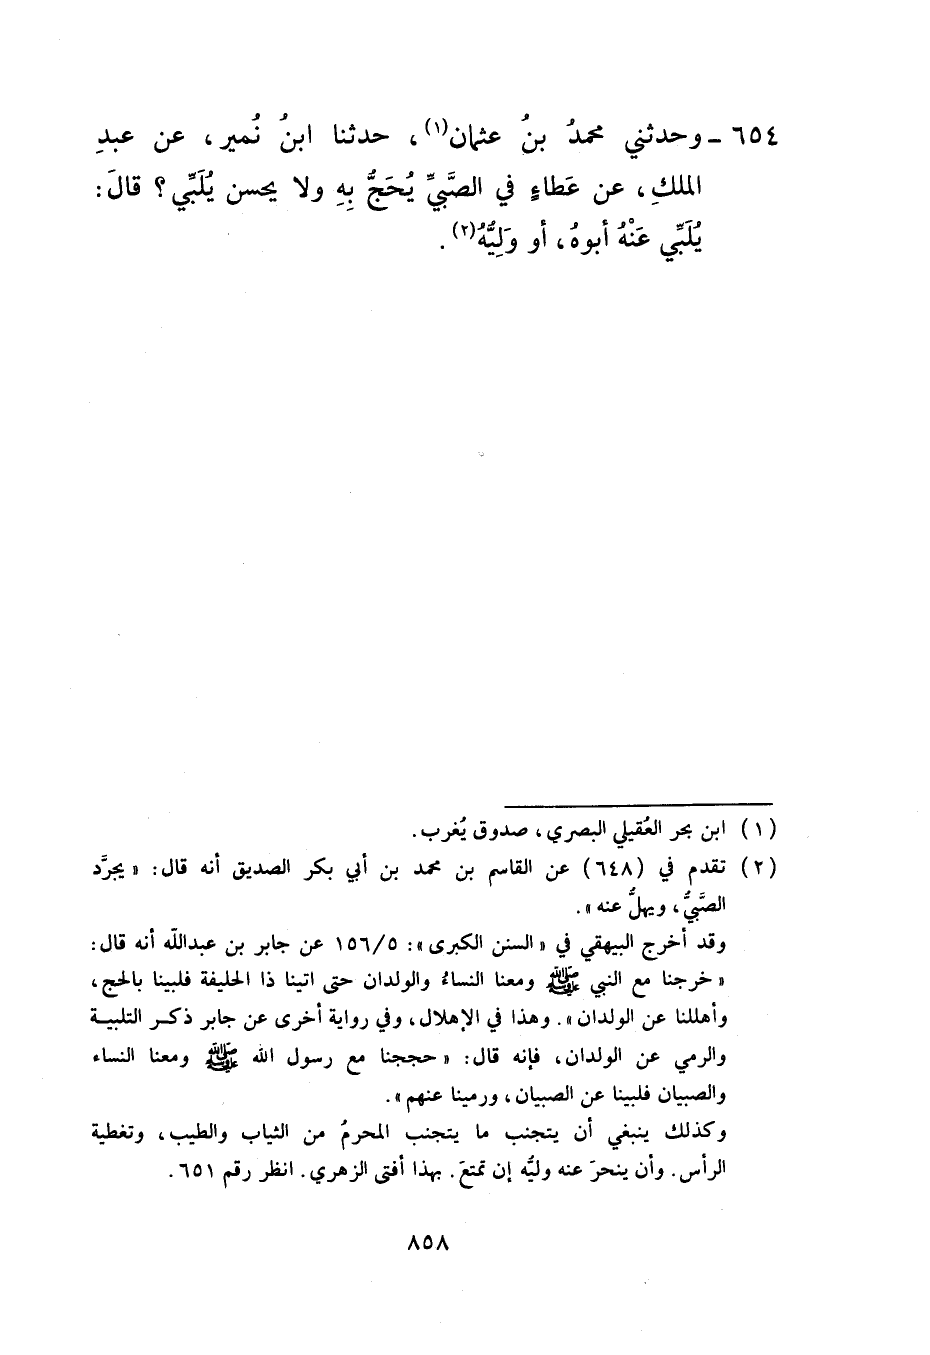 ٦٥٤ - وحدثني محمدُ بنُ عثمان(١)، حدثنا ابنُ نُمير، عن عبدِ
الملكِ، عن عَطاءٍ في الصَّبيِّ يُحَجُّ بِهِ ولا يحسن يُلَبِّي؟ قالَ:
يُلَبِّي عَنْهُ أبوهُ، أو وَلِيُّهُ(٢).
(١) ابن بحر العُقيلي البصري، صدوق يُغرب.
(٢) تقدم في (٦٤٨) عن القاسم بن محمد بن أبي بكر الصديق أنه قال: «يجرَّد
الصَّبيُّ، ويهلُّ عنه».
وقد أخرج البيهقي في «السنن الكبرى»: ١٥٦/٥ عن جابر بن عبدالله أنه قال:
«خرجنا مع النبي ﷺ ومعنا النساءُ والولدان حتى اتينا ذا الحليفة فلبينا بالحج،
وأهللنا عن الولدان». وهذا في الإهلال، وفي رواية أخرى عن جابر ذكر التلبية
والرمي عن الولدان، فإنه قال: «حججنا مع رسول الله ﷺ ومعنا النساء
والصبيان فلبينا عن الصبيان، ورمينا عنهم».
وكذلك ينبغي أن يتجنب ما يتجنب المحرمُ من الثياب والطيب، وتغطية
الرأس. وأن ينحرَ عنه وليُّه إن تمتعَ. بهذا أفتى الزهري. انظر رقم ٦٥١.
٨٥٨